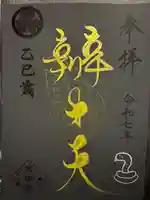 奉拝
令和七年
辨才天
乙巳歳